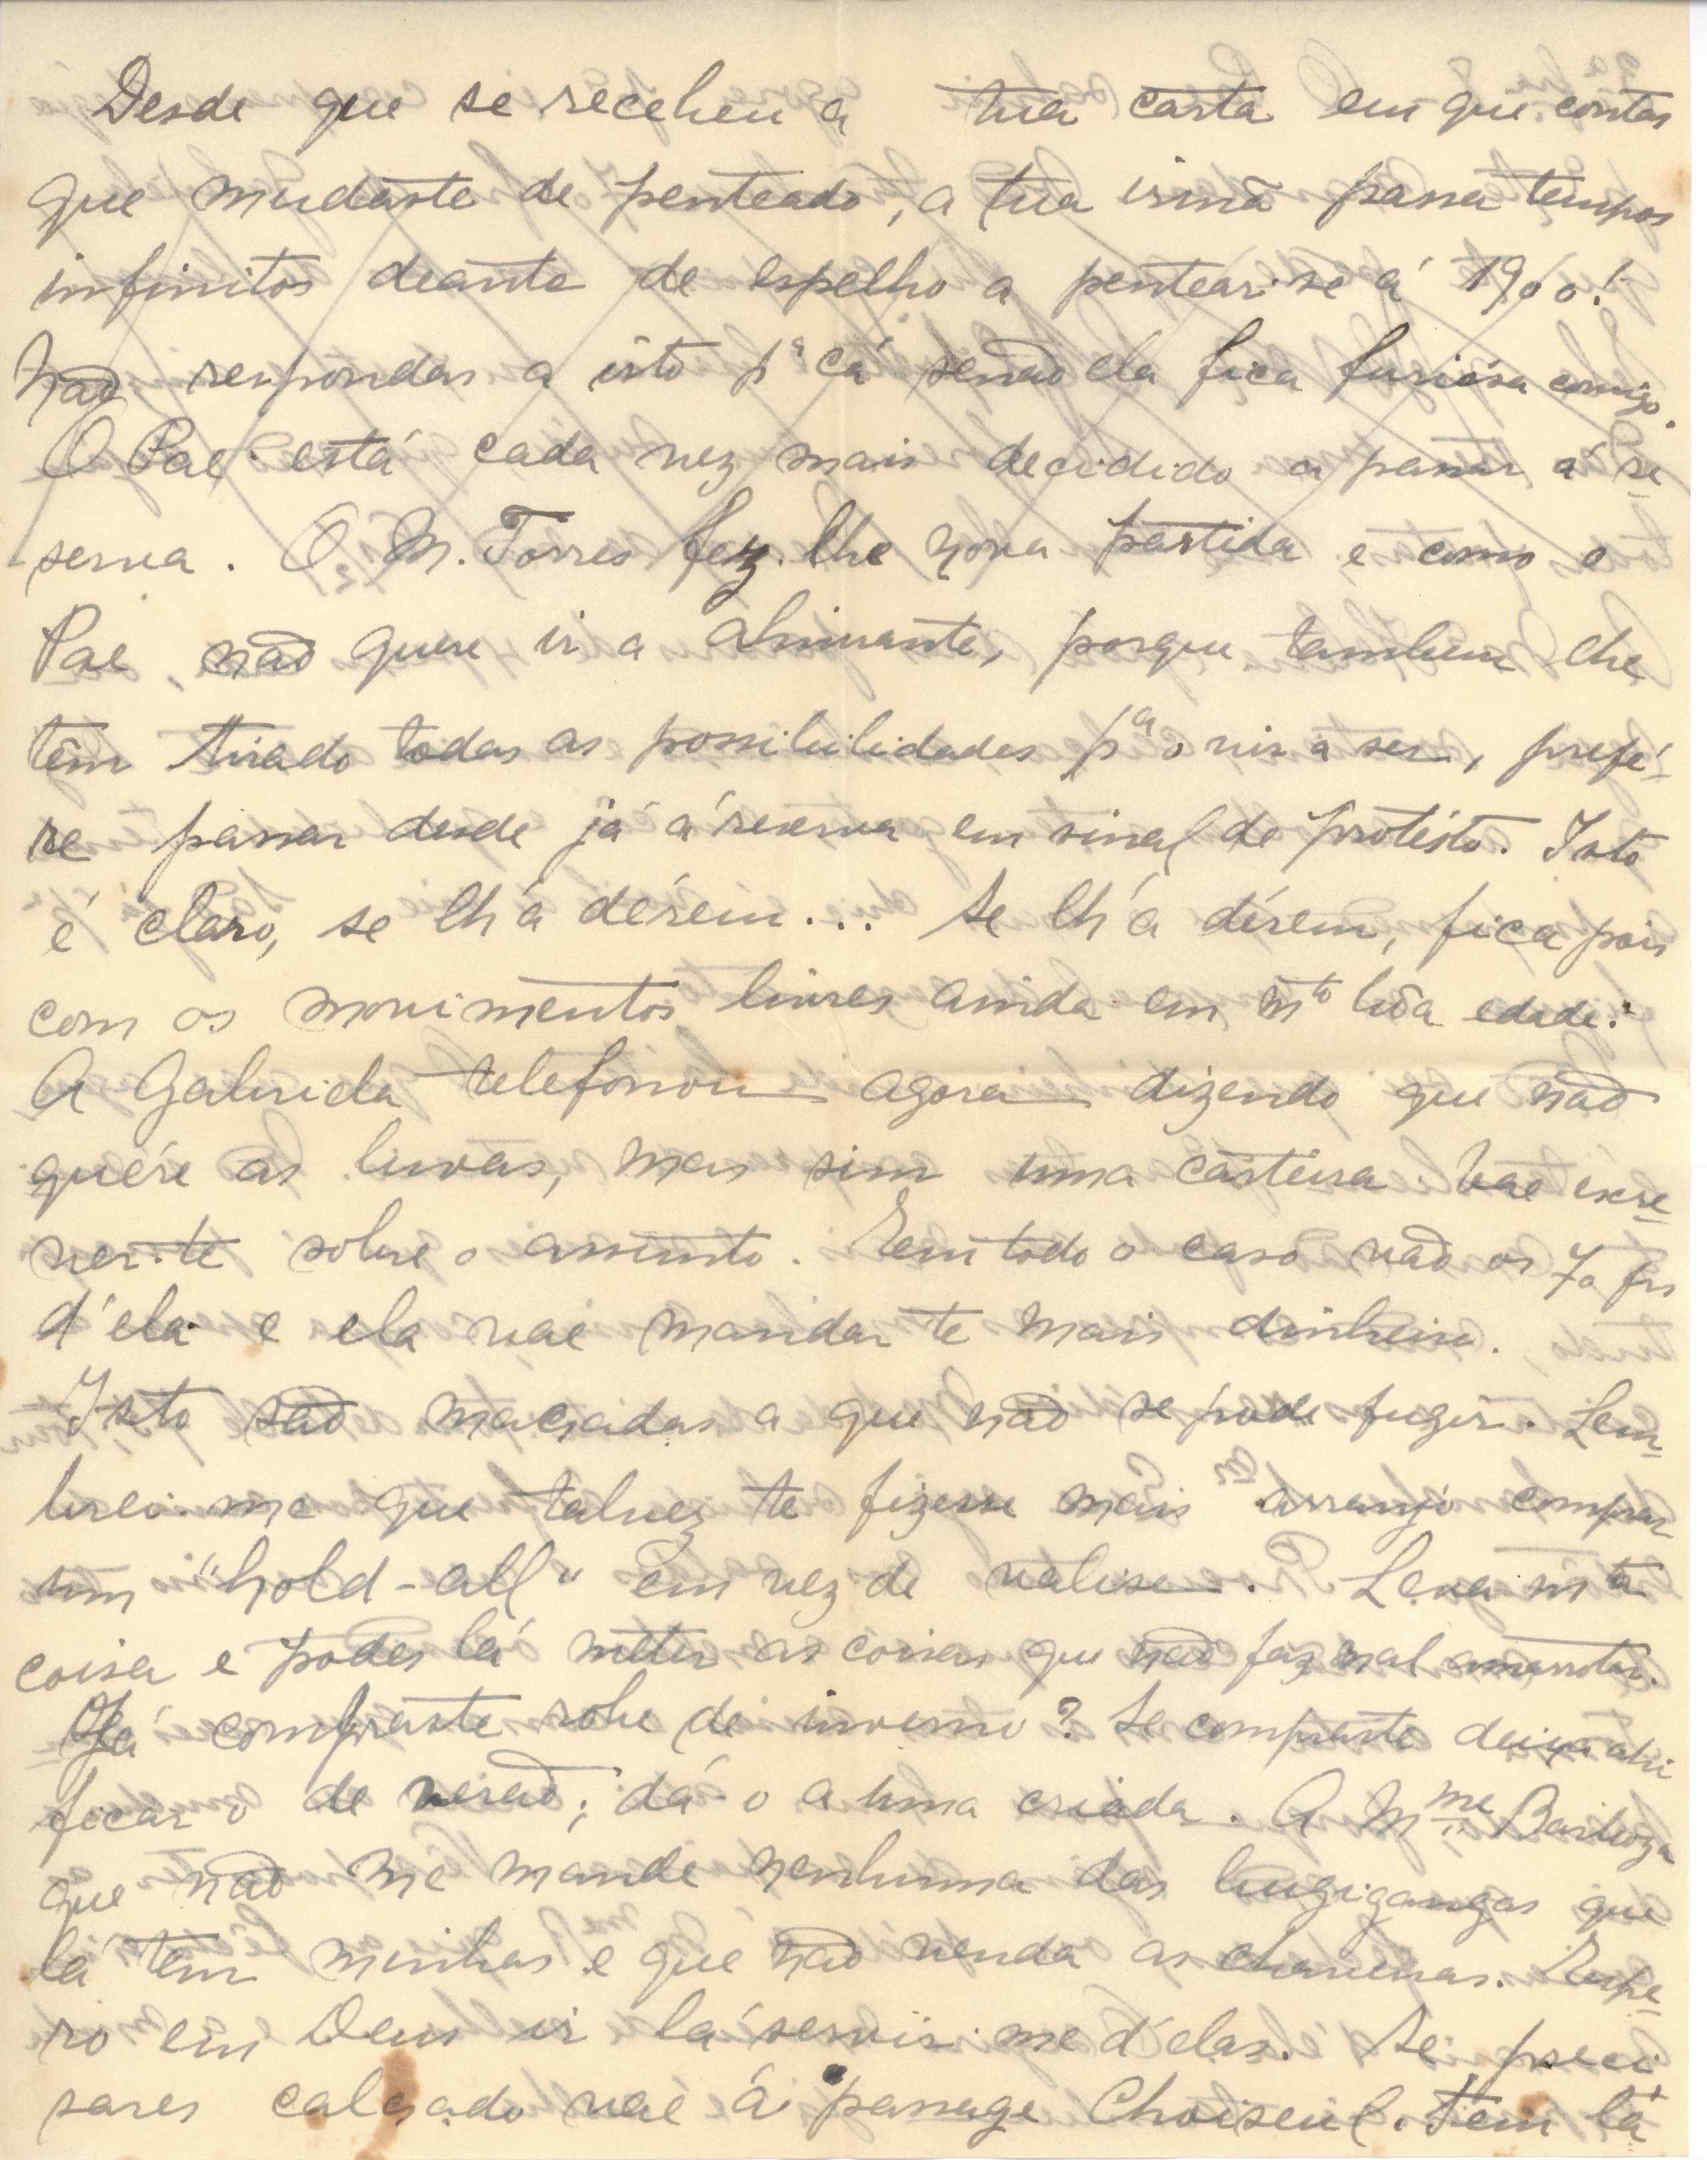 Desde que se recebeu a tua carta em que contas
que mudaste de penteado, a tua irmã passa tempos
infinitos deante de espelho a pentear-se á 1900!
Não respondas a isto pª cá senão ela fica furiósa comigo.
O Pae está cada vez mais decidido a passar á re
serva. O M. Torres fez-lhe nova partida e como o
Pae não quere ir a almirante, porque tambem lhe
têm tirado todas as possibilidades pª o vir a ser, prefé-
re passar desde já á reserva em sinal de protésto. Isto
é claro, se lh'a dérem... Se lh'a dérem, fica pois
com os movimentos livres ainda em mto bôa edade.
A Gabriela telefonou agora dizendo que não
quére as luvas, mas sim uma carteira. Vae escre-
ver-te sobre o assunto. Em todo o caso vão os 70 frs
d'ela e ela vae mandar te mais dinheiro.
Isto são maçadas a que não se póde fugir. Lem-
brei-me que talvez te fizesse mais arranjo comprar
um "hold-all" em vez de valise. Leva mta
coisa e podes lá meter as coisas que não faz mal amarrotar.
Já compraste robe de inverno? Se compraste deixa ahi
ficar o de verão; dá-o a uma criada. A Mme Barboza
que não me mande nenhuma das bugigangas que
lá tem minhas e que não venda as chavenas. Espe-
ro em Deus ir lá servir-me d'elas. Se preci
sares calçado vae á passage Choiseul. Tem lá